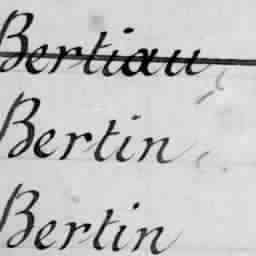 Bertiau
Bertin
Bertin